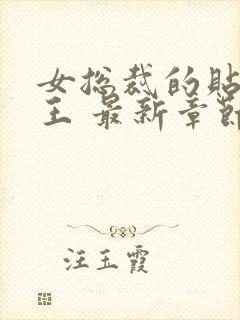 女总裁的贴
王 最新章节
汪玉霞